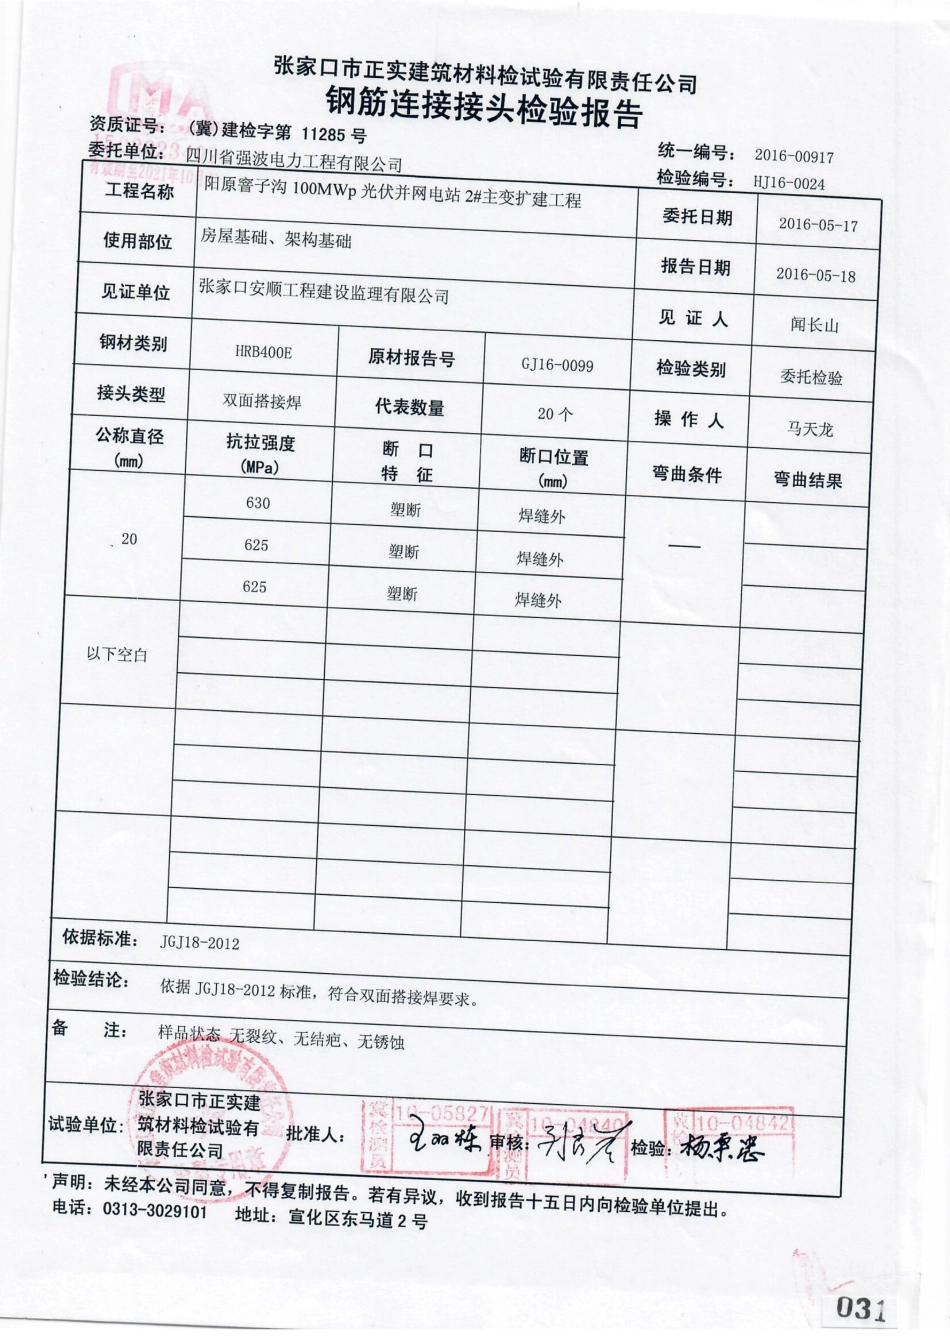 张家口市正实建筑材料检试验有限责任公司
钢筋连接接头检验报告
资质证号： (冀)建检字第 11285 号
委托单位： 四川省强波电力工程有限公司
统一编号： 2016-00917
检验编号： HJ16-0024
工程名称 阳原窨子沟 100MWp 光伏并网电站 2#主变扩建工程 委托日期 2016-05-17
使用部位 房屋基础、架构基础 报告日期 2016-05-18
见证单位 张家口安顺工程建设监理有限公司 见 证 人 闻长山
钢材类别 HRB400E 原材报告号 GJ16-0099 检验类别 委托检验
接头类型 双面搭接焊 代表数量 20 个 操 作 人 马天龙
公称直径 (mm) 抗拉强度 (MPa) 断 口 特 征 断口位置 (mm) 弯曲条件 弯曲结果
630 塑断 焊缝外
20 625 塑断 焊缝外 —
625 塑断 焊缝外
以下空白
依据标准： JGJ18-2012
检验结论： 依据 JGJ18-2012 标准，符合双面搭接焊要求。
备 注： 样品状态 无裂纹、无结疤、无锈蚀
试验单位： 张家口市正实建
筑材料检试验有
限责任公司
批准人： 审核： 检验：
冀 10-05827 检测员
冀 10-04840 测员
冀 10-04842
声明：未经本公司同意，不得复制报告。若有异议，收到报告十五日内向检验单位提出。
电话：0313-3029101 地址：宣化区东马道 2 号
031